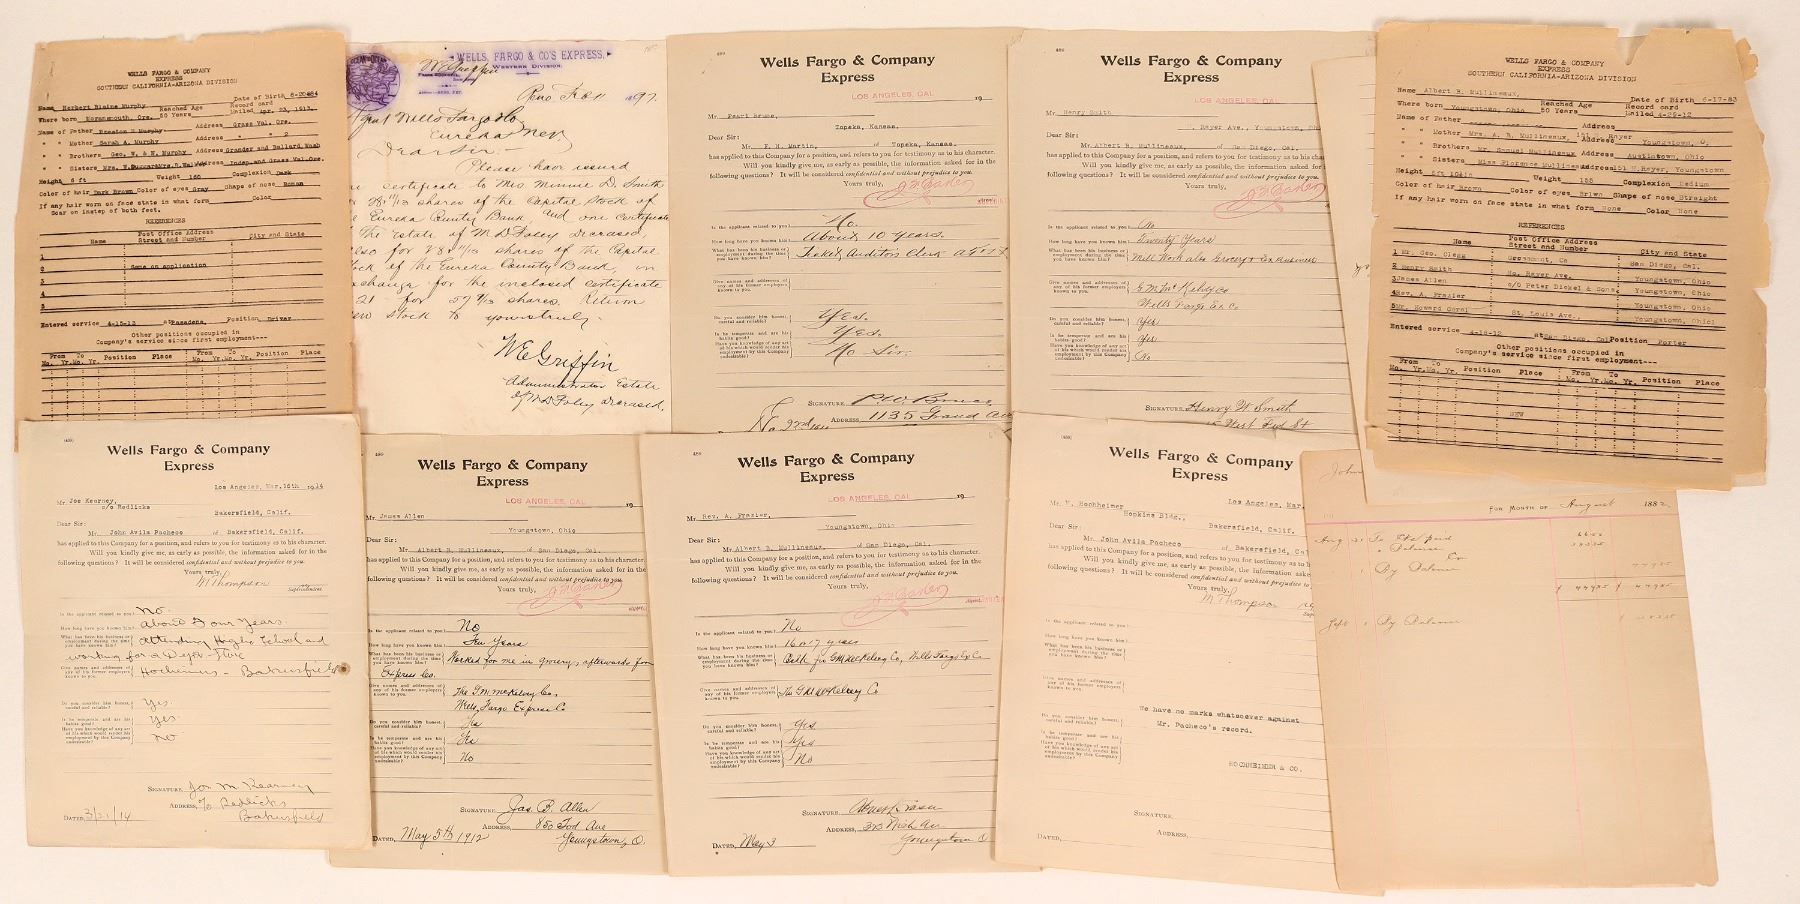 WELLS FARGO & COMPANY
EXPRESS
SOUTHERN CALIFORNIA-ARIZONA DIVISION
Date of Birth 8-20-84
Name Herbert Blaine Murphy Reached Age Record card
Where born Marsnmouth, Ore. 50 Years Mailed Apr. 23, 1913.
Name of Father Preston H Murphy Address Grass Val. Ore.
" " Mother Sarah A. Murphy Address " " 2
" " Brothers Geo. W. & N. Murphy Address Grander and Ballard Wash
" " Sisters Mrs. Address Indep. and Grass Val. Ore.
Height 6 ft Weight 168 Complexion Dark
Color of hair Dark Brown Color of eyes Gray Shape of nose Roman
If any hair worn on face state in what form Color
Scar on instep of both feet.
REFERENCES
Name Post Office Address City and State
Street and Number
1
2 Same on application
3
4
5
Entered service 4-15-13 at Pasadena, Position Driver
Other positions occupied in
Company's service since first employment---
From To Position Place From To Position Place
Mo. Yr. Mo. Yr. Mo. Yr. Mo. Yr.
WELLS, FARGO & CO'S EXPRESS,
WESTERN DIVISION.
Reno Feb 11 1897.
Agent Wells Fargo & Co
Eureka Nev
Dear Sir:-
Please have issued
certificate to Mrs Minnie D. Smith
28 4/13 shares of the Capital Stock of
Eureka County Bank and one certificate
The Estate of M D Foley deceased,
also for 28 11/13 shares of the Capital
Stock of the Eureka County Bank, in
exchange for the inclosed certificate
21 for 57 9/13 shares. Return
new stock to yours truly.
W E Griffin
Administrator Estate
of M D Foley deceased.
489
Wells Fargo & Company
Express
LOS ANGELES, CAL 19
Mr. Pearl Bruce,
Topeka, Kansas.
Dear Sir:
Mr. F. H. Martin, of Topeka, Kansas.
has applied to this Company for a position, and refers to you for testimony as to his character.
Will you kindly give me, as early as possible, the information asked for in the
following questions? It will be considered confidential and without prejudice to you.
Yours truly,
Is the applicant related to you? No.
How long have you known him? About 10 years.
What has been his business or employment during the time you have known him? Ticket Auditors Clerk
Give names and addresses of any of his former employers known to you.
Do you consider him honest, careful and reliable? Yes.
Is he temperate and are his habits good? Yes.
Have you knowledge of any act of his which would render his employment by this Company undesirable? No Sir.
SIGNATURE P. W. Bruce
ADDRESS 1135 Grand Ave
489
Wells Fargo & Company
Express
LOS ANGELES, CAL 19
Mr. Henry Smith
Rayer Ave., Youngstown, Oh
Dear Sir:
Mr. Albert B. Mullineaux, of San Diego, Cal.
has applied to this Company for a position, and refers to you for testimony as to his character.
Will you kindly give me, as early as possible, the information asked for in the
following questions? It will be considered confidential and without prejudice to you.
Yours truly,
Is the applicant related to you? No
How long have you known him? Twenty Years
What has been his business or employment during the time you have known him? Mill Work also Grocery & Ex Business
Give names and addresses of any of his former employers known to you. G M Mc Kelvy Co
Wells Fargo Ex Co
Do you consider him honest, careful and reliable? Yes
Is he temperate and are his habits good? Yes
Have you knowledge of any act of his which would render his employment by this Company undesirable? No
SIGNATURE Henry W. Smith
West Fed St
WELLS FARGO & COMPANY
EXPRESS
SOUTHERN CALIFORNIA-ARIZONA DIVISION
Name Albert B. Mullineaux, Date of Birth 6-17-83
Where born Youngstown, Ohio Reached Age 50 Years Record card Mailed 4-29-12
Name of Father Address
" " Mother Mrs. A. B. Mullineaux, 151 Rayer Youngstown, O,
" " Brothers Mr. Samuel Mullineaux Address Austintown, Ohio
" " Sisters Miss Florence Mullineaux Address 151 N. Rayer, Youngstown
Height 5ft 10½in Weight 155 Complexion Medium
Color of hair Brown Color of eyes Brown Shape of nose Straight
If any hair worn on face state in what form None Color None
REFERENCES
Name Post Office Address City and State
Street and Number
1 Mr. Geo. Clegg Grossmont, Ca San Diego, Cal.
2 Henry Smith No. Rayer Ave. Youngstown, Ohio
3 James Allen c/o Peter Dickel & Sons Youngstown, Ohio
4 Rev. A. Frazier Youngstown, Ohio
5 Mr. Howard St. Louis Ave., Youngstown, Ohio
Entered service 4-16-12 at San Diego, Cal Position Porter
Other positions occupied in
Company's service since first employment---
From To Position Place From To Position Place
Mo. Yr. Mo. Yr. Mo. Yr. Mo. Yr.
NEW
(489)
Wells Fargo & Company
Express
Los Angeles, Mar. 16th 1914
Mr. Joe Kearney,
c/o Redlicks
Bakersfield, Calif.
Dear Sir:
Mr. John Avila Pacheco of Bakersfield, Calif.
has applied to this Company for a position, and refers to you for testimony as to his character.
Will you kindly give me, as early as possible, the information asked for in the
following questions? It will be considered confidential and without prejudice to you.
Yours truly,
M Thompson
Superintendent
Is the applicant related to you? No.
How long have you known him? About Four Years.
What has been his business or employment during the time you have known him? Attending High School and
working for a Dept-Store
Give names and addresses of any of his former employers known to you. Hocheims - Bakersfield
Do you consider him honest, careful and reliable? Yes.
Is he temperate and are his habits good? Yes.
Have you knowledge of any act of his which would render his employment by this Company undesirable? No
SIGNATURE Joe M Kearney
ADDRESS, c/o Redlicks
Bakersfield
DATED, 3/21/14
489
Wells Fargo & Company
Express
LOS ANGELES, CAL 19
Mr. James Allen
Youngstown, Ohio
Dear Sir:
Mr. Albert B. Mullineaux, of San Diego, Cal.
has applied to this Company for a position, and refers to you for testimony as to his character.
Will you kindly give me, as early as possible, the information asked for in the
following questions? It will be considered confidential and without prejudice to you.
Yours truly,
Is the applicant related to you? No
How long have you known him? Ten Years
What has been his business or employment during the time you have known him? Worked for me in grocery, afterwards for
Express Co.
Give names and addresses of any of his former employers known to you. The G M McKelvy Co,
Wells, Fargo Express Co
Do you consider him honest, careful and reliable? Yes
Is he temperate and are his habits good? Yes
Have you knowledge of any act of his which would render his employment by this Company undesirable? No
SIGNATURE, Jas. B. Allen
ADDRESS, 850 Tod Ave
Youngstown, O.
DATED, May 5th 1912
489
Wells Fargo & Company
Express
LOS ANGELES, CAL 19
Mr. Rev. A. Frazier,
Youngstown, Ohio
Dear Sir:
Mr. Albert B. Mullineaux, of San Diego, Cal.
has applied to this Company for a position, and refers to you for testimony as to his character.
Will you kindly give me, as early as possible, the information asked for in the
following questions? It will be considered confidential and without prejudice to you.
Yours truly,
Is the applicant related to you? No
How long have you known him? 16 or 17 years
What has been his business or employment during the time you have known him? for GM McKelvey Co, Wells Fargo Ex Co
Give names and addresses of any of his former employers known to you. The GM McKelvey Co
Do you consider him honest, careful and reliable? Yes
Is he temperate and are his habits good? Yes
Have you knowledge of any act of his which would render his employment by this Company undesirable? No
SIGNATURE,
ADDRESS,
Youngstown O
DATED, May 3
(489)
Wells Fargo & Company
Express
Los Angeles, Mar.
Mr. Hochheimer
Hopkins Bldg., Bakersfield, Calif.
Dear Sir:
Mr. John Avila Pocheco of Bakersfield, Cal
has applied to this Company for a position, and refers to you for testimony as to his
Will you kindly give me, as early as possible, the information
following questions? It will be considered confidential and without prejudice to
Yours truly,
M Thompson
Is the applicant related to you?
How long have you known him?
What has been his business or employment during the time you have known him?
Give names and addresses of any of his former employers known to you.
Do you consider him honest, careful and reliable? We have no marks whatsoever against
Is he temperate and are his habits good? Mr. Pacheco's record.
Have you knowledge of any act of his which would render his employment by this Company undesirable?
HOCHHEIMER & CO.
SIGNATURE,
ADDRESS,
DATED,
John
FOR MONTH OF August 1882
Aug 31 To Ck paid
" Balance
" By Balance
Sept 1 By Balance